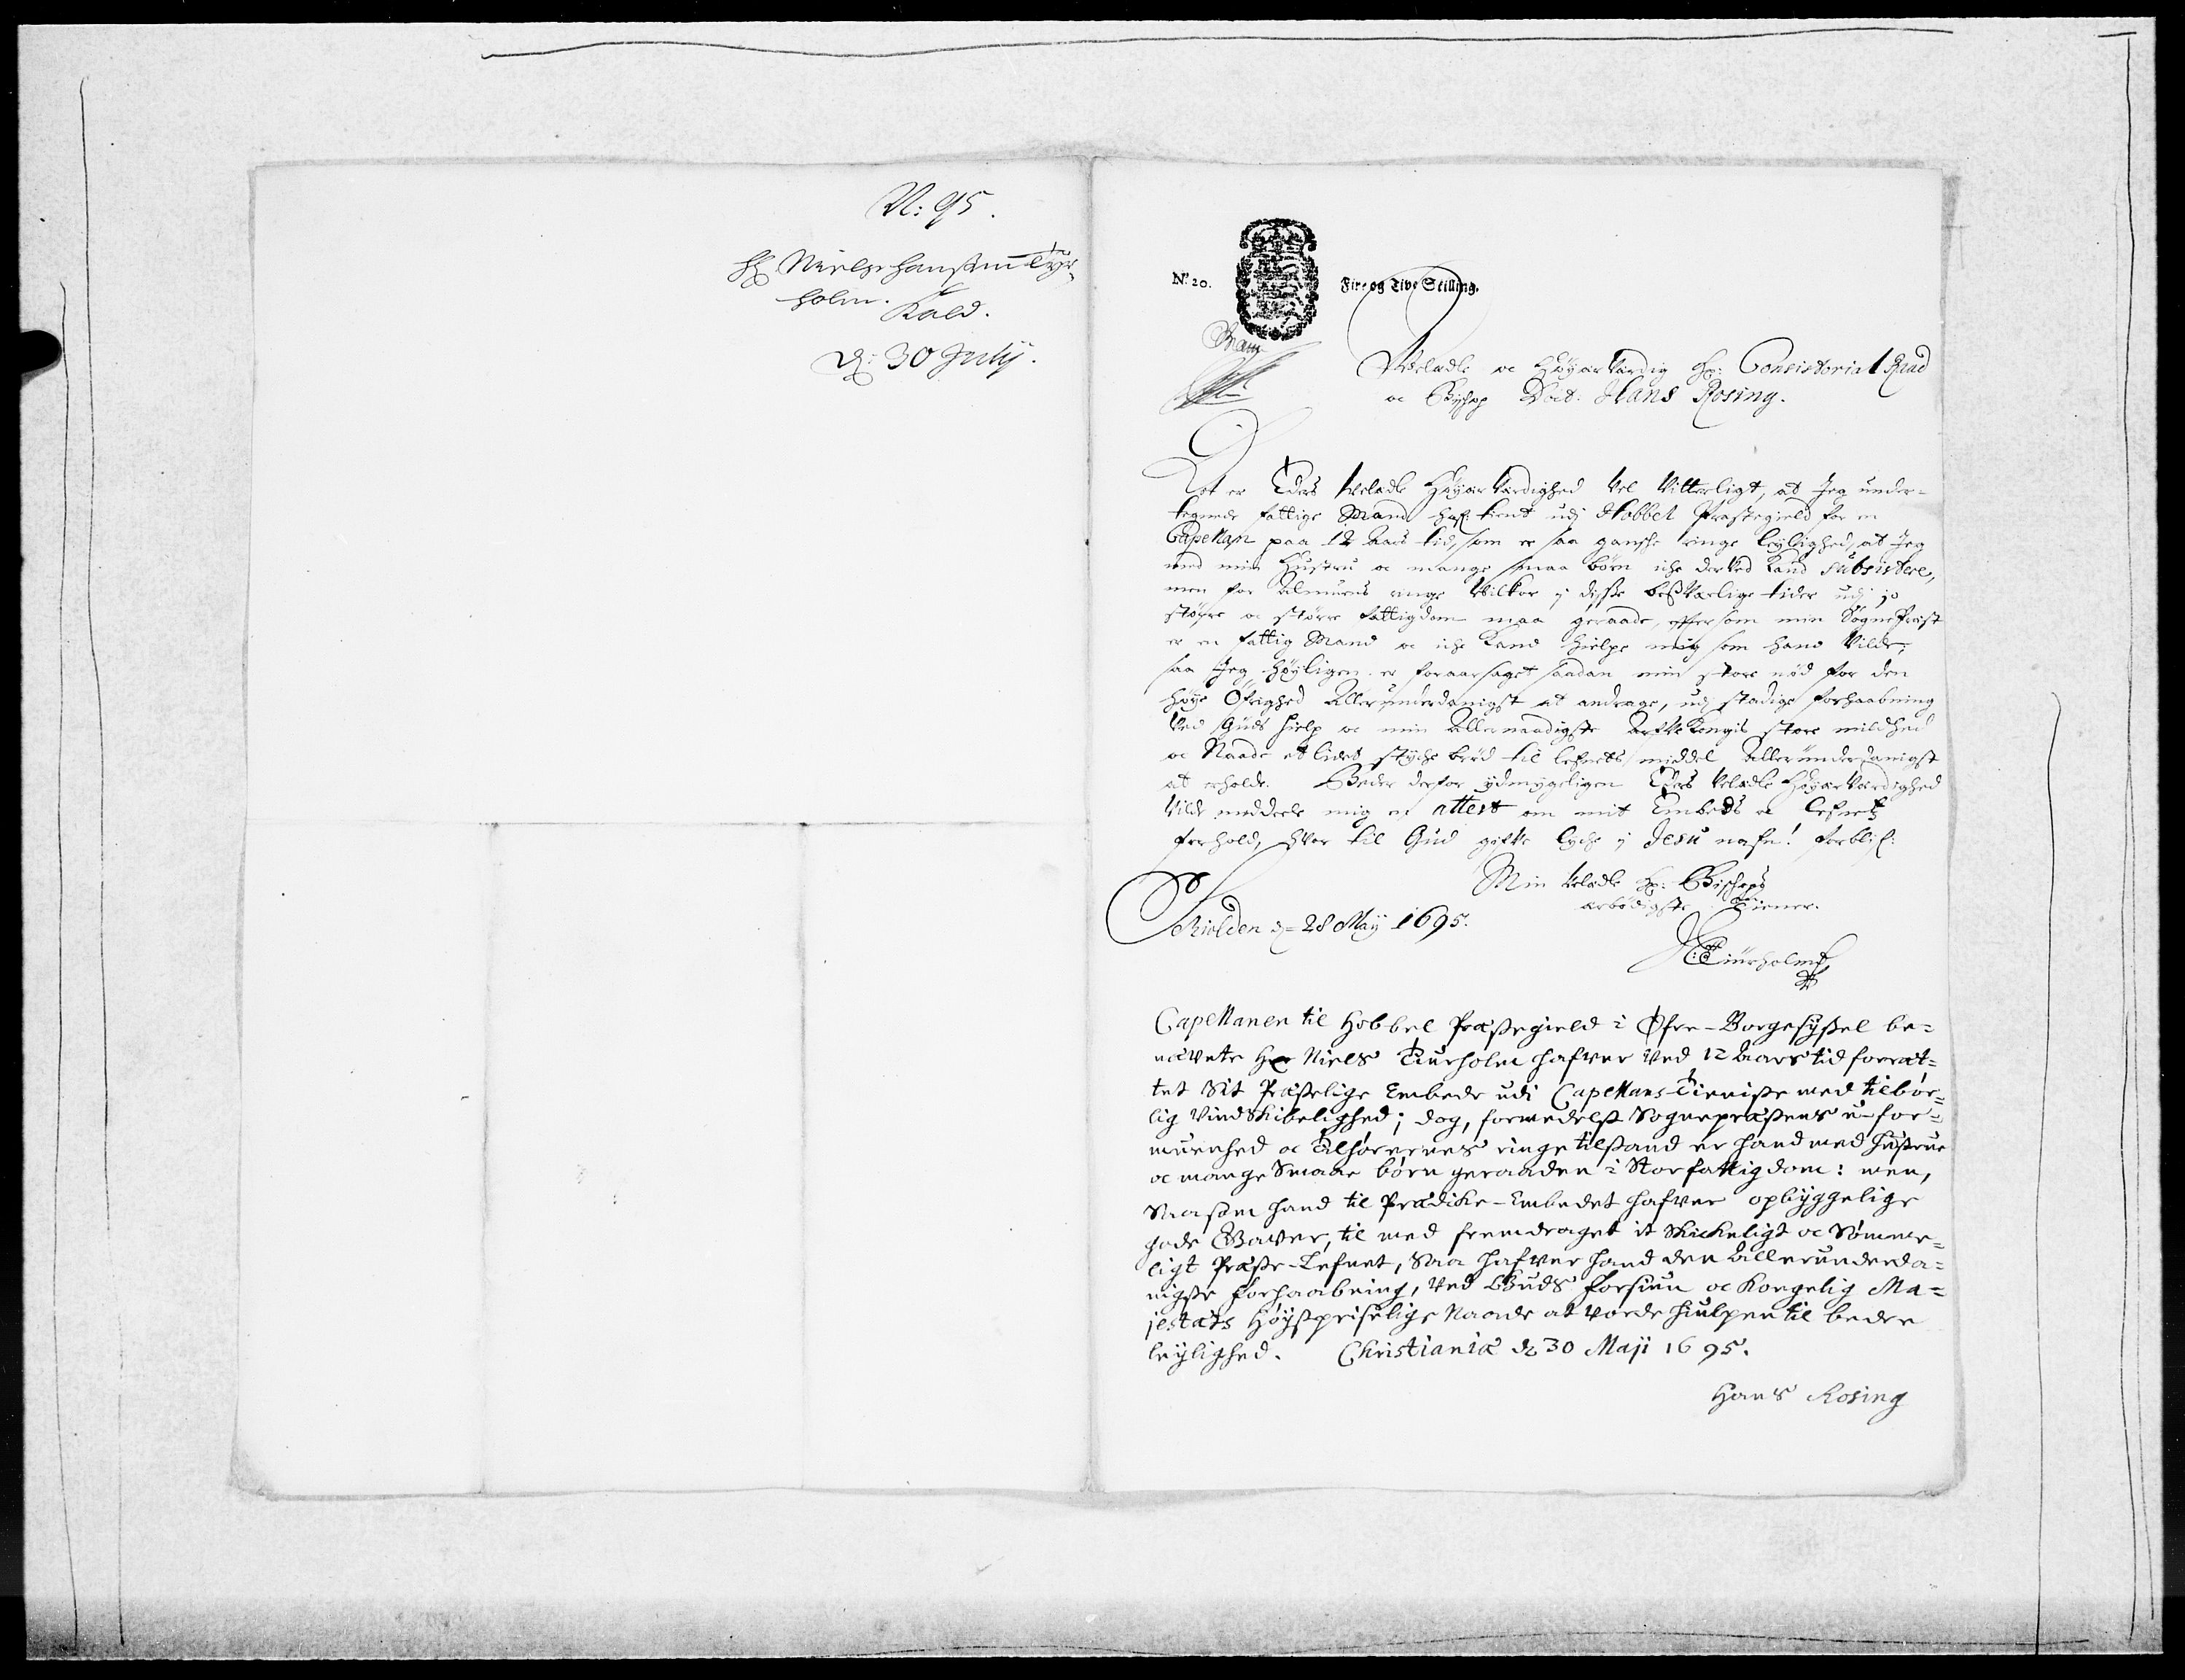 N: 95.
Hr Niels Hanssen Tyr-
holm. Kald.
d: 30 July.
No. 20.
Fire og Tive Skilling.
Velædle oc Høyærværdig Hr: Consistorial Raad
oc Bischop Doct: Hans Rosing.
Det er Eders Velædle Høyærværdighed vel vitterligt, at Jeg under-
tegnede fattige Mand haf: tient udj Hobbel Præstegield for en
Capellan paa 12 Aars tid, som er saa gansche ringe leylighed, at Jeg
med min Hustru oc mange smaa børn iche derved kand subsistere,
men for Almuens ringe Vilkor j disse besværlige tider udj jo
større oc større fattigdom maa geraade, eftersom min SognePræst
er en fattig Mand oc iche kand hielpe mig som hand vilde,
saa Jeg høyligen er foraarsaget saadan min store nød for den
høye Øfrighed Allerunderdanigst at andrage, udj stadige forhaabning
ved Guds hielp oc min Allernaadigste Arfve Kongis store mildhed
oc Naade et lidet støche brød til lefnets middel Allerunderdanigst
at erholde. Beder derfor ydmygeligen Eders Velædle Høyærværdighed
vilde meddeele mig en attest om mit Embeds oc lefnets
forhold, hvor til Gud gifve lyche j Jesu nafn! forblif:
Min Velædle Hr: Bischops
ærbødigste Tiener.
Skiolden d: 28 Maij 1695.
N: H: Tiurholm
Capellanen til Hobbel Præstegield i Øfre-Borgesyssel be-
nævnte Hr Niels Tiurholm hafver ved 12 Aars tid forræt-
tet Sit Præstelige Embede udi Capellans-Tieniste med tilbør-
lig Vindskibelighed; dog, formedelst Sognepræstens u-for-
muenhed oc Tilhørernes ringe tilstand er hand med Hustrue
oc mange Smaae børn geraaden i Stor fattigdom: men,
Saasom hand til Prædike-Embedet hafver opbyggelige
gode Gaver, til med fremdraget it Skickeligt oc Sømme-
ligt Præste-Lefnet, Saa hafver hand den Allerunderda-
nigste forhaabning, ved Guds forsiun oc Kongelig Ma-
jestæts Høystpriselige Naade at vorde hiulpen til bedre
leylighed. Christianiæ d. 30 Maji 1695.
Hans Rosing